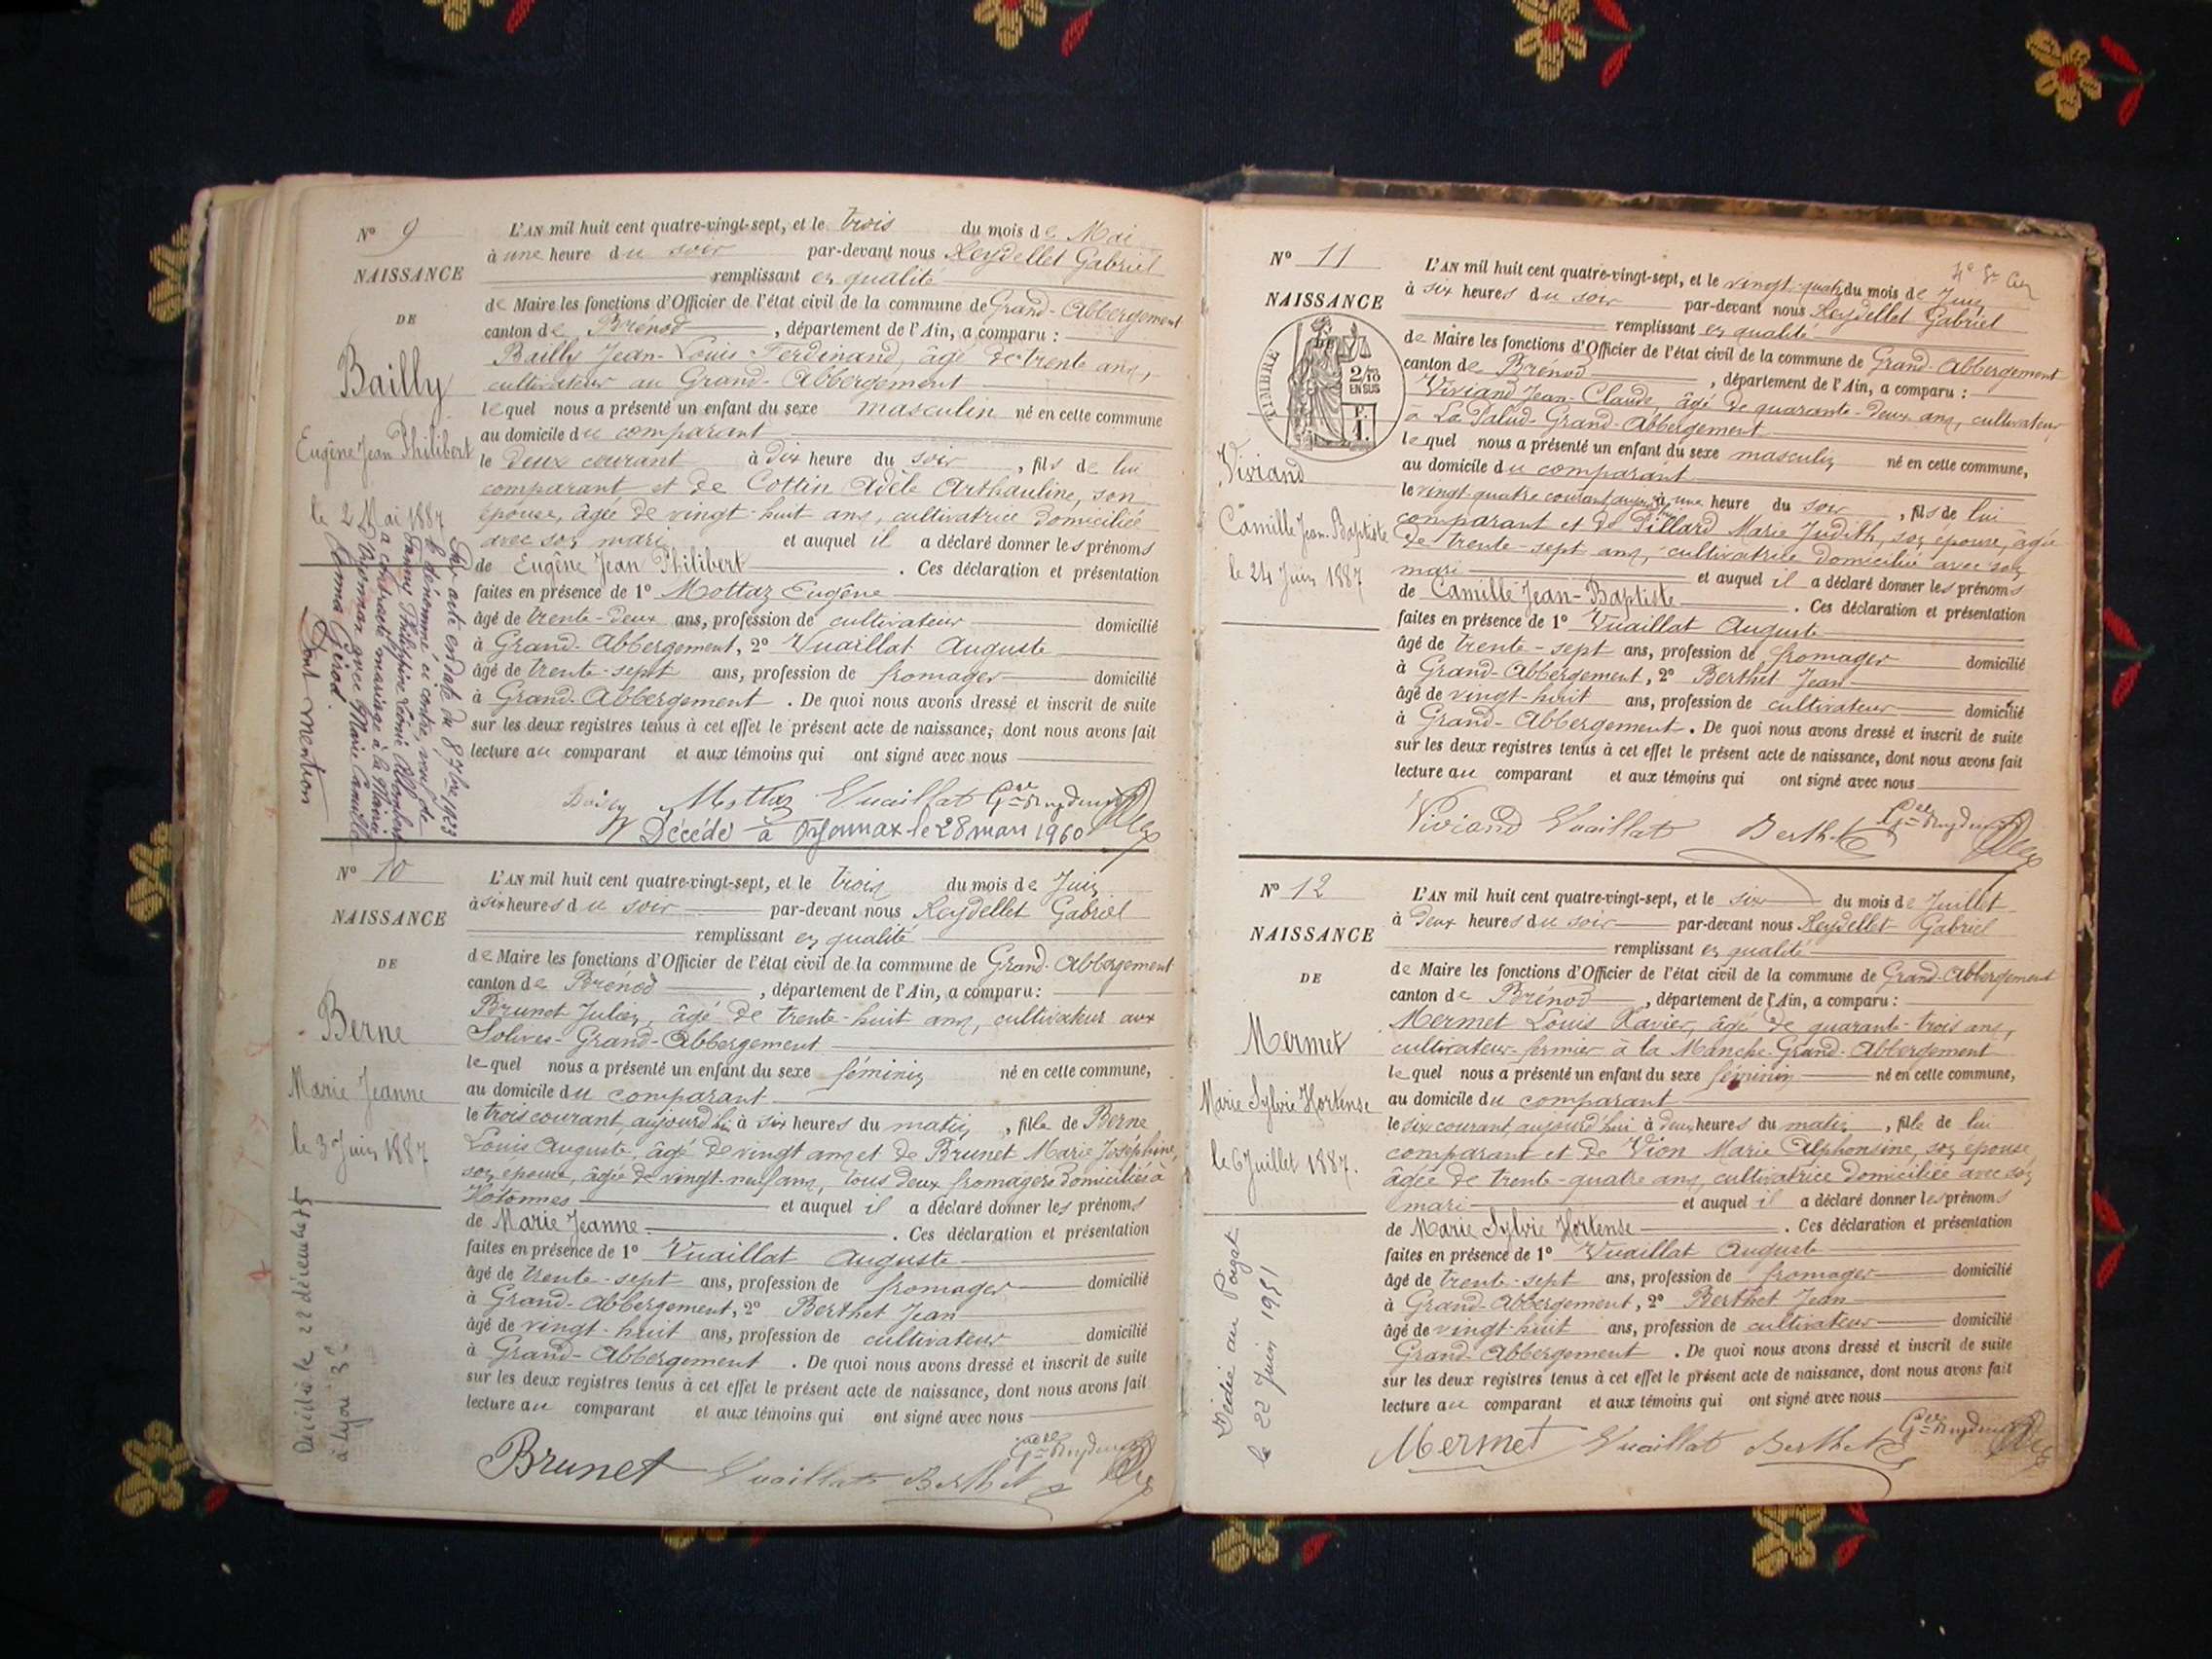 N° 9
NAISSANCE
DE
Bailly
Eugène Jean Philibert
le 2 Mai 1887
Par acte en date du 8 7bre 1923
le dénommé ci contre, veuf de
Fanny Philippine Léonie
a contracté mariage à la Mairie
avec Marie Camille
Emma Gérod.
Dont mention
L'AN mil huit cent quatre-vingt-sept, et le trois du mois de Mai
à une heure du soir par-devant nous Reydellet Gabriel
remplissant en qualité
de Maire les fonctions d'Officier de l'état civil de la commune de Grand-Abbergement
canton de Brénod, département de l'Ain, a comparu :
Bailly Jean-Louis Ferdinand, âgé de trente ans,
cultivateur au Grand-Abbergement
lequel nous a présenté un enfant du sexe masculin né en cette commune
au domicile du comparant
le deux courant à dix heure du soir, fils de lui
comparant et de Cottin Adèle Arthauline, son
épouse, âgée de vingt-huit ans, cultivatrice domiciliée
avec son mari et auquel il a déclaré donner les prénoms
de Eugène Jean Philibert. Ces déclaration et présentation
faites en présence de 1° Mottaz Eugène
âgé de trente-deux ans, profession de cultivateur domicilié
à Grand-Abbergement, 2° Vuaillat Auguste
âgé de trente-sept ans, profession de fromager domicilié
à Grand-Abbergement. De quoi nous avons dressé et inscrit de suite
sur les deux registres tenus à cet effet le présent acte de naissance, dont nous avons fait
lecture au comparant et aux témoins qui ont signé avec nous
Bailly Mottaz Vuaillat Gel Reydellet
Décédé à Oyonnax le 28 mars 1960
N° 10
NAISSANCE
DE
Berne
Marie Jeanne
le 3 Juin 1887
Décédée le 22 décembre 75
à Lyon 3e
L'AN mil huit cent quatre-vingt-sept, et le trois du mois de Juin
à six heures du soir par-devant nous Reydellet Gabriel
remplissant en qualité
de Maire les fonctions d'Officier de l'état civil de la commune de Grand-Abbergement
canton de Brénod, département de l'Ain, a comparu :
Brunet Julien, âgé de trente-huit ans, cultivateur aux
Solives-Grand-Abbergement
lequel nous a présenté un enfant du sexe féminin né en cette commune,
au domicile du comparant
le trois courant, aujourd'hui à six heures du matin, fille de Berne
Louis Auguste, âgé de vingt ans et de Brunet Marie Joséphine,
son épouse, âgée de vingt-neuf ans, tous deux fromagers domiciliés à
Hotonnes et auquel il a déclaré donner les prénoms
de Marie Jeanne. Ces déclaration et présentation
faites en présence de 1° Vuaillat Auguste
âgé de trente-sept ans, profession de fromager domicilié
à Grand-Abbergement, 2° Berthet Jean
âgé de vingt-huit ans, profession de cultivateur domicilié
à Grand-Abbergement. De quoi nous avons dressé et inscrit de suite
sur les deux registres tenus à cet effet le présent acte de naissance, dont nous avons fait
lecture au comparant et aux témoins qui ont signé avec nous
Brunet Vuaillat Berthet Gel Reydellet
N° 11
NAISSANCE
TIMBRE
2/10 EN SUS
F. 1.
Viviand
Camille Jean-Baptiste
le 24 Juin 1887
L'AN mil huit cent quatre-vingt-sept, et le vingt-quatre du mois de Juin
à six heures du soir par-devant nous Reydellet Gabriel
remplissant en qualité
de Maire les fonctions d'Officier de l'état civil de la commune de Grand-Abbergement
canton de Brénod, département de l'Ain, a comparu :
Viviand Jean-Claude âgé de quarante-deux ans, cultivateur
à La Palud-Grand-Abbergement
lequel nous a présenté un enfant du sexe masculin né en cette commune,
au domicile du comparant
le vingt quatre courant à une heure du soir, fils de lui
comparant et de Pillard Marie Judith, son épouse, âgée
de trente-sept ans, cultivatrice domiciliée avec son
mari et auquel il a déclaré donner les prénoms
de Camille Jean-Baptiste. Ces déclaration et présentation
faites en présence de 1° Vuaillat Auguste
âgé de trente-sept ans, profession de fromager domicilié
à Grand-Abbergement, 2° Berthet Jean
âgé de vingt-huit ans, profession de cultivateur domicilié
à Grand-Abbergement. De quoi nous avons dressé et inscrit de suite
sur les deux registres tenus à cet effet le présent acte de naissance, dont nous avons fait
lecture au comparant et aux témoins qui ont signé avec nous
Viviand Vuaillat Berthet Gel Reydellet
N° 12
NAISSANCE
DE
Mermet
Marie Sylvie Hortense
le 6 Juillet 1887.
le 22 Juin 1951
L'AN mil huit cent quatre-vingt-sept, et le six du mois de Juillet
à deux heures du soir par-devant nous Reydellet Gabriel
remplissant en qualité
de Maire les fonctions d'Officier de l'état civil de la commune de Grand-Abbergement
canton de Brénod, département de l'Ain, a comparu :
Mermet Louis Xavier, âgé de quarante-trois ans,
cultivateur-fermier à la Manche-Grand-Abbergement
lequel nous a présenté un enfant du sexe féminin né en cette commune,
au domicile du comparant
le six courant, aujourd'hui à deux heures du matin, fille de lui
comparant et de Vion Marie Alphonsine, son épouse
âgée de trente-quatre ans, cultivatrice domiciliée avec son
mari et auquel il a déclaré donner les prénoms
de Marie Sylvie Hortense. Ces déclaration et présentation
faites en présence de 1° Vuaillat Auguste
âgé de trente-sept ans, profession de fromager domicilié
à Grand-Abbergement, 2° Berthet Jean
âgé de vingt-huit ans, profession de cultivateur domicilié
Grand-Abbergement. De quoi nous avons dressé et inscrit de suite
sur les deux registres tenus à cet effet le présent acte de naissance, dont nous avons fait
lecture au comparant et aux témoins qui ont signé avec nous
Mermet Vuaillat Berthet Gel Reydellet